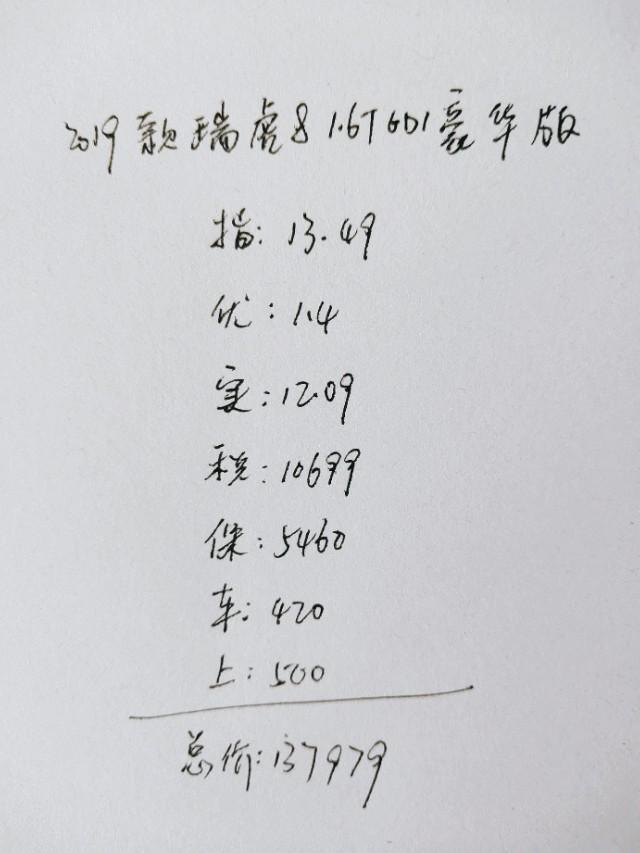 2019款瑞虎8 1.6TGDI豪华版
指: 13.49
优: 1.4
实: 12.09
税: 10699
保: 5460
车: 420
上: 500
总价: 137979